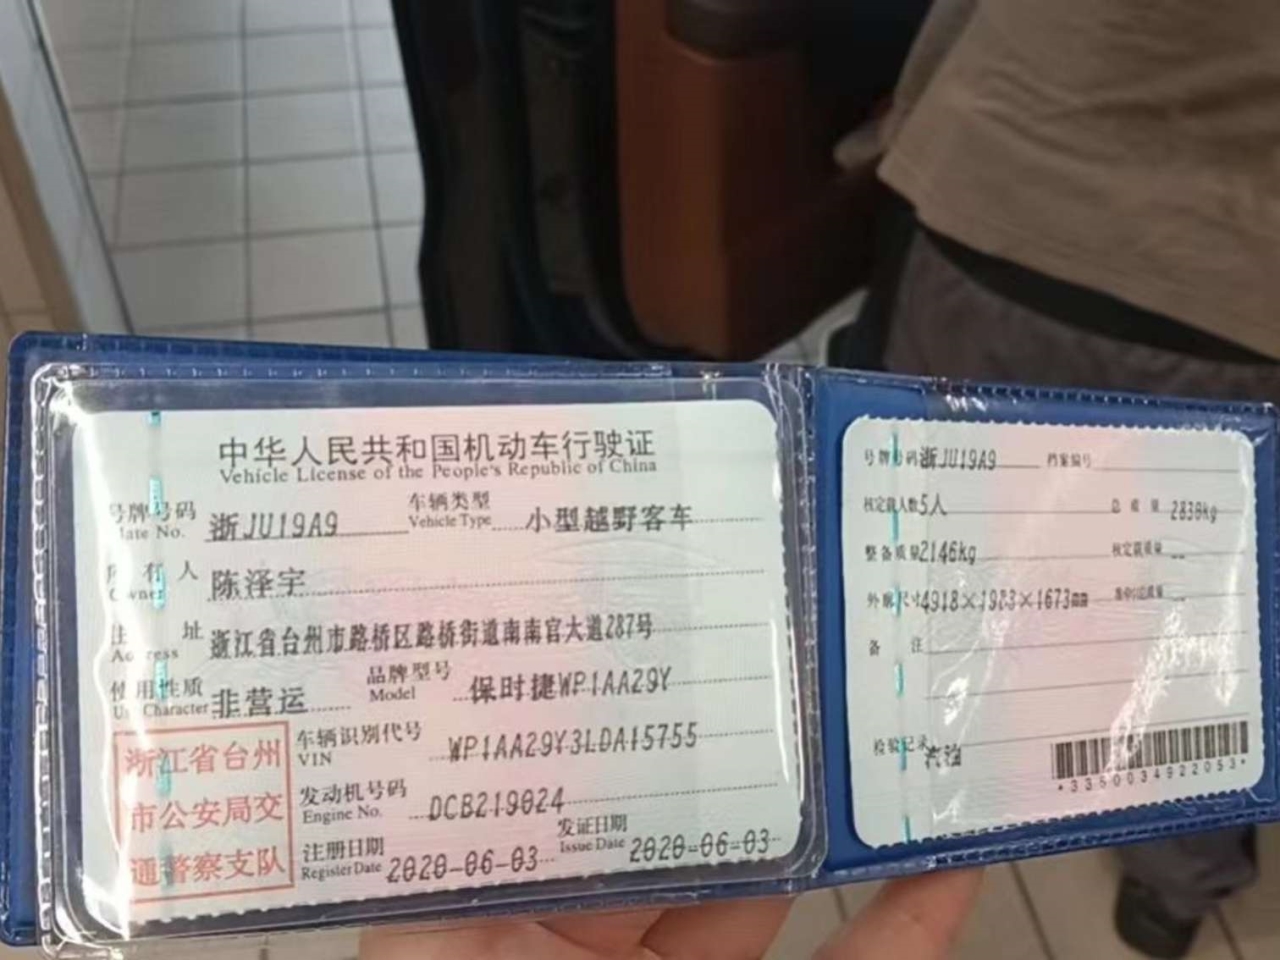 中华人民共和国机动车行驶证
Vehicle License of the People's Republic of China
号牌号码 浙JU19A9 车辆类型 小型越野客车
Plate No. Vehicle Type
所有人 陈泽宇
Owner
住址 浙江省台州市路桥区路桥街道南南官大道287号
Address
使用性质 非营运 品牌型号 保时捷WP1AA29Y
Use Character Model
浙江省台州
市公安局交
通警察支队
车辆识别代号 WP1AA29Y3LDA15755
VIN
发动机号码 DCB219024
Engine No.
注册日期 2020-06-03 发证日期 2020-06-03
Register Date Issue Date
号牌号码 浙JU19A9 档案编号
核定载人数 5人 总质量 2830kg
整备质量 2146kg 核定载质量 --
外廓尺寸 4918×1983×1673mm 准牵引总质量 --
备注
检验记录 汽油
*3360034922053*